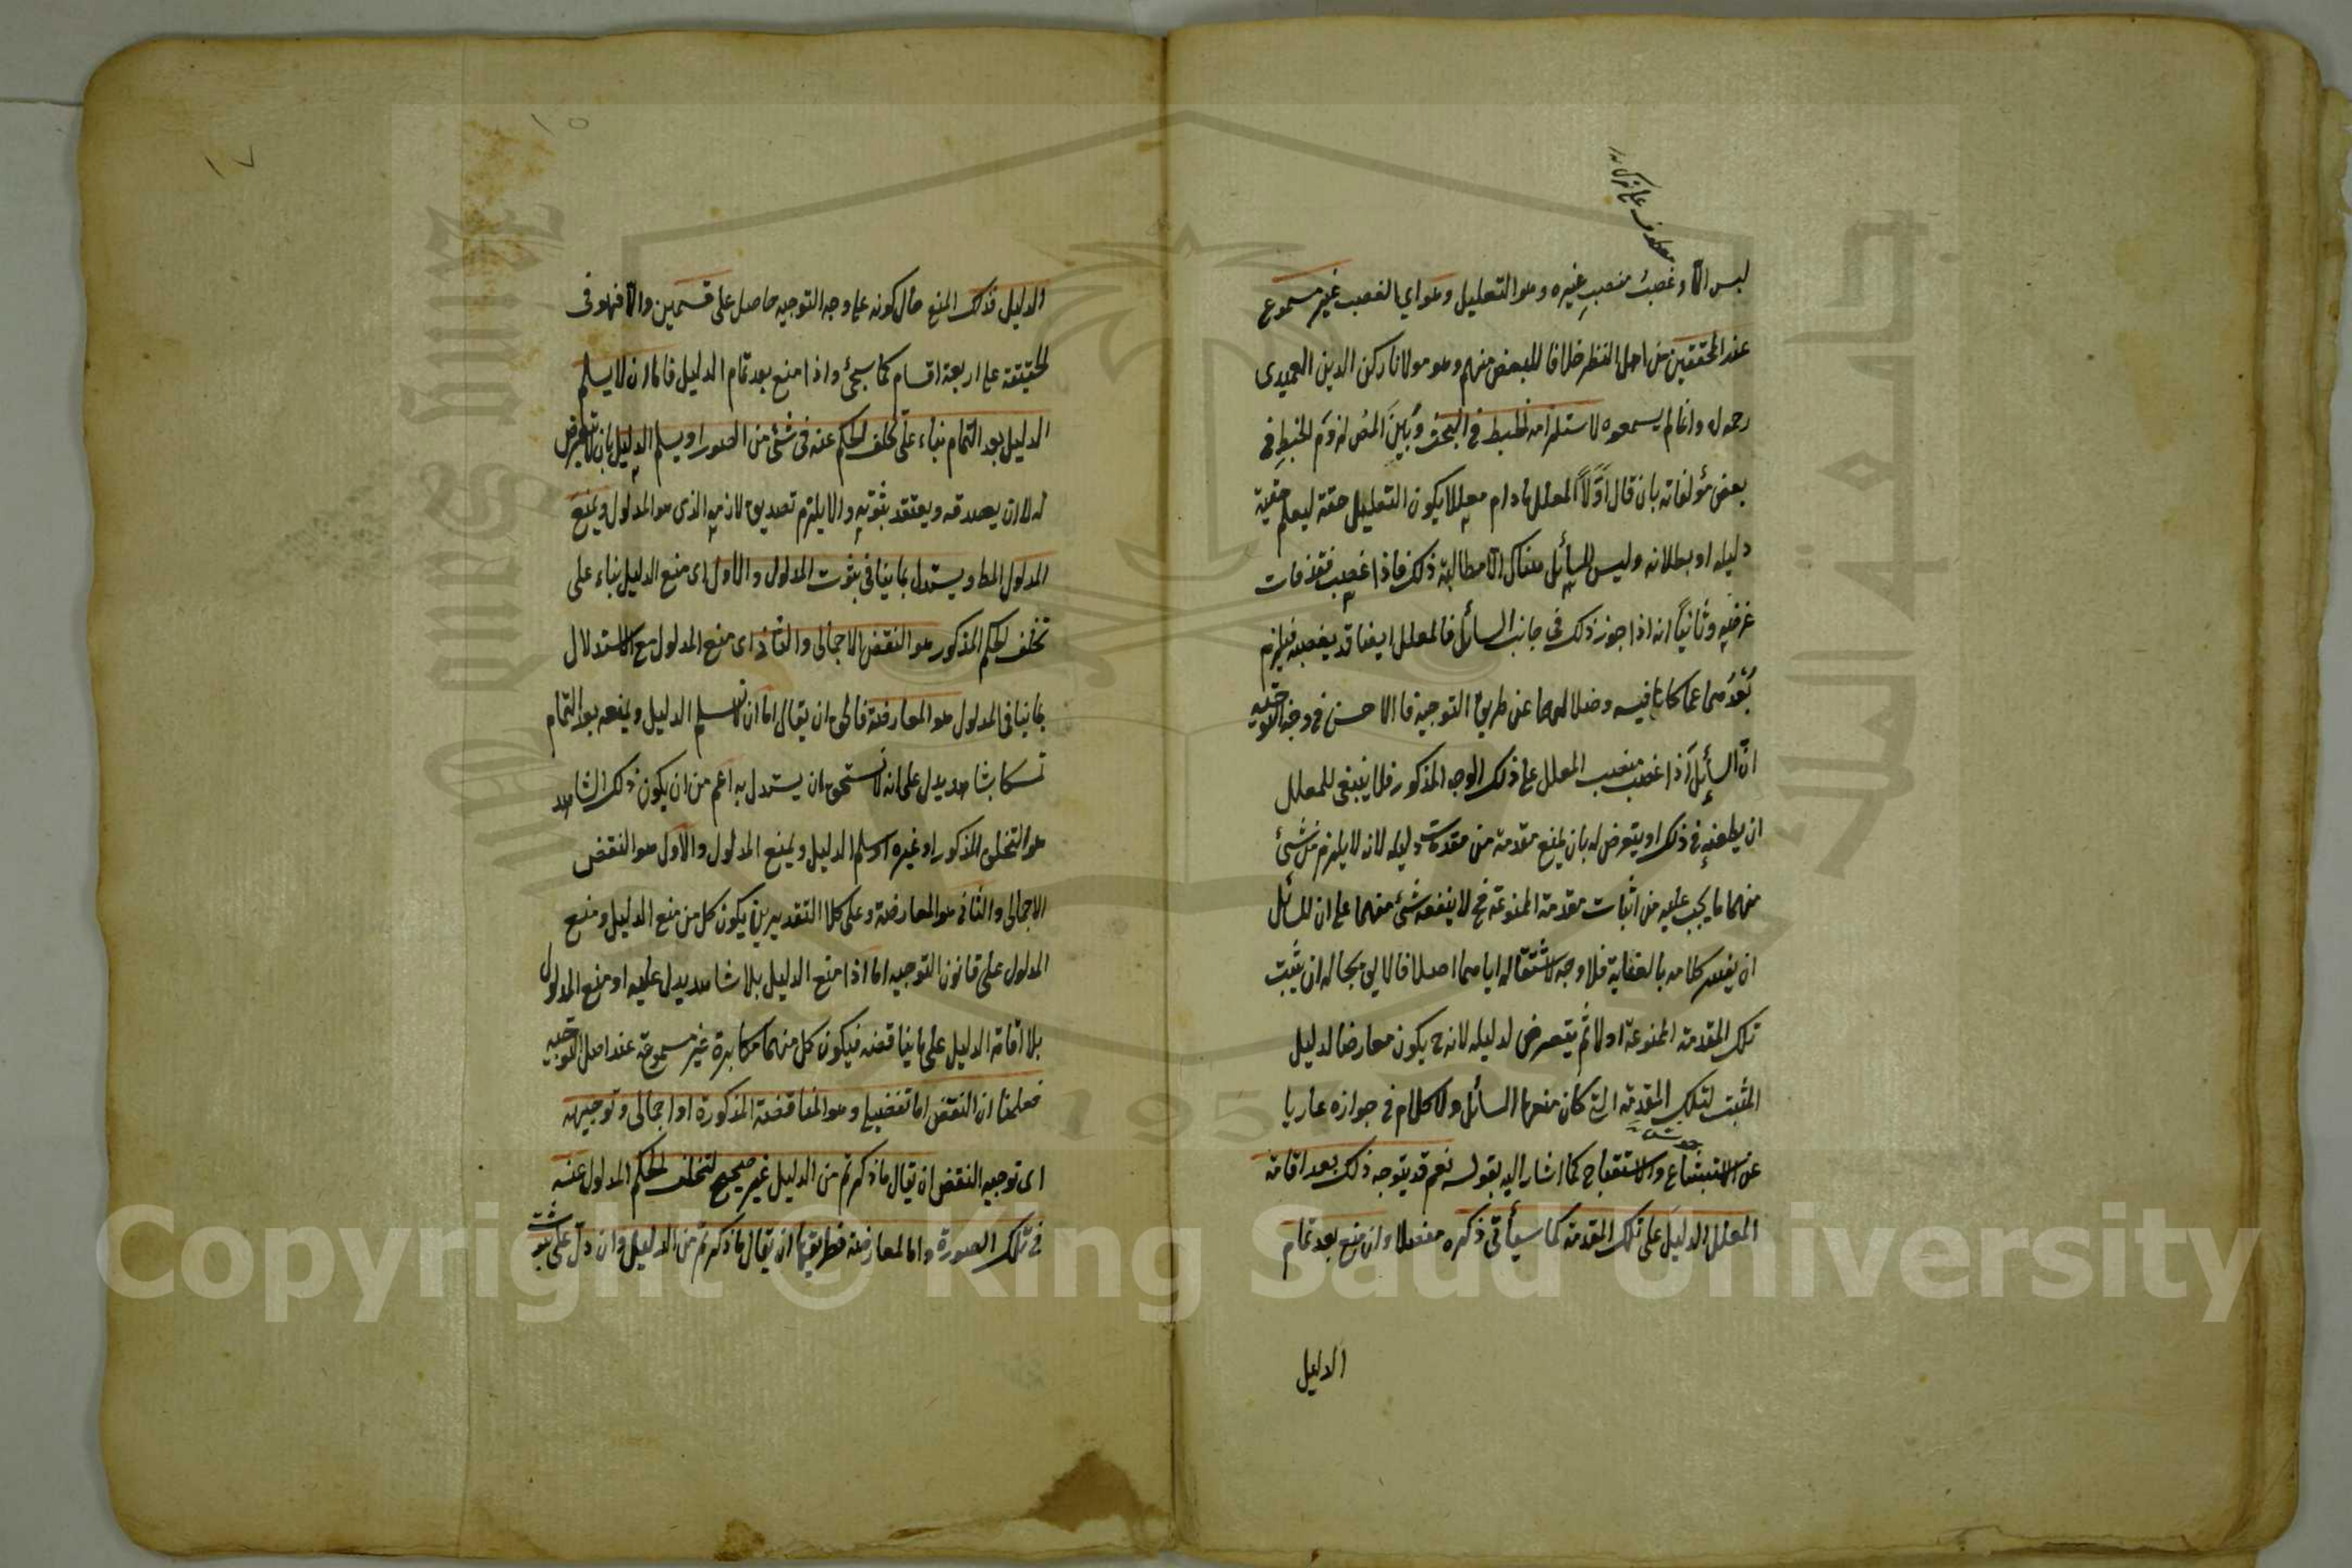 ليس الا وغصبت منصب غيره وهو التعليل وهو اي الغصب غير مسموع
عند المحققين من اهل النظر خلافا للبعض منهم وهو مولانا ركن الدين العميدى
رحمه له وانما لم يسمعوه لاستلزامه الخبط في البحث وبين المص لزوم الخبط في
بعض مؤلفاته بان قال اولا المعلل مادام معللا يكون التعليل حقه ليعلم حقية
دليله او بطلانه وليس للسائل هناك الا مطالبة ذلك فاذا غصب فقد فات
غرضه وثانيا انه اذا جوز ذلك في جانب السائل فالمعلل ايضا قد يغصبه فيلزم
بعدهما عما كانا فيه وضلالهما عن طريق التوجيه فالاحسن في وجه التوجيه
ان السائل اذا غصب منصب المعلل على ذلك الوجه المذكور فلا ينبغى للمعلل
ان يطعنه في ذلك او يتعرض له بان يمنع مقدمة من مقدمات دليله لانه لا يلزم من شئ
منهما ما يجب عليه من اثبات مقدمة الممنوعة فح لا ينفعه شئ منهما على ان للسائل
ان كلامه فلا وجه لاشتغاله اياهما اصلا فاللايق بحاله ان يثبت
تلك المقدمة الممنوعة اولا ثم يتعرض لدليله لانه ح يكون معارضا لدليل
المثبت لتلك المقدمة التى كان منعها السائل ولا كلام في جوازه عاريا
عن الاستبشاع والاستقباح كما اشار اليه بقوله نعم قد يتوجه ذلك بعد اقامة
المعلل الدليل على تلك المقدمة كما سيأتى ذكره مفصلا وان منع بعد تمام
الدليل
١٥
١٧
الدليل فذلك المنع حال كونه على وجه التوجيه حاصل على قسمين والا فهو فى
الحقيقة على اربعة اقسام كما سيجئ واذا منع بعد تمام الدليل فاما ان لا يسلم
الدليل بعد التمام بناء على تخلف الحكم عنه فى شئ من الصور او يسلم الدليل بان لا يتعرض
له لا ان يصدقه ويعتقد بثبوته والا يلزم تصديق لازمه الذى هو المدلول ويمنع
المدلول المط ويستدل بما ينافى ثبوت المدلول والاول اى منع الدليل بناء على
تخلف الحكم المذكور هو النقض الاجمالى والثانى اى منع المدلول مع الاستدلال
بما ينافى المدلول هو المعارضة فالحق ان يقال اما ان لا يسلم الدليل ويمنعه بعد التمام
تمسكا بشاهد يدل على انه لا يستحق ان يستدل به اعم من ان يكون ذلك الشاهد
هو التخلف المذكور او غيره او يسلم الدليل ويمنع المدلول والاول هو النقض
الاجمالى والثانى هو المعارضة وعلى كلا التقديرين يكون كل من منع الدليل ومنع
المدلول على قانون التوجيه اما اذا منع الدليل بلا شاهد يدل عليه او منع المدلول
بلا اقامة الدليل على ما يناقضه فيكون كل منهما مكابرة غير مسموعة عند اهل التوجيه
فعلمنا ان النقض اما تفصيلى وهو المناقضة المذكورة او اجمالى وتوجيهه
اى توجيه النقض ان يقال ما ذكرتم من الدليل غير صحيح لتخلف الحكم المدلول عنه
فى تلك الصورة واما المعارضة فطريقها ان يقال ما ذكرتم من الدليل وان دل على ثبوت
Copyright © King Saud University
1957